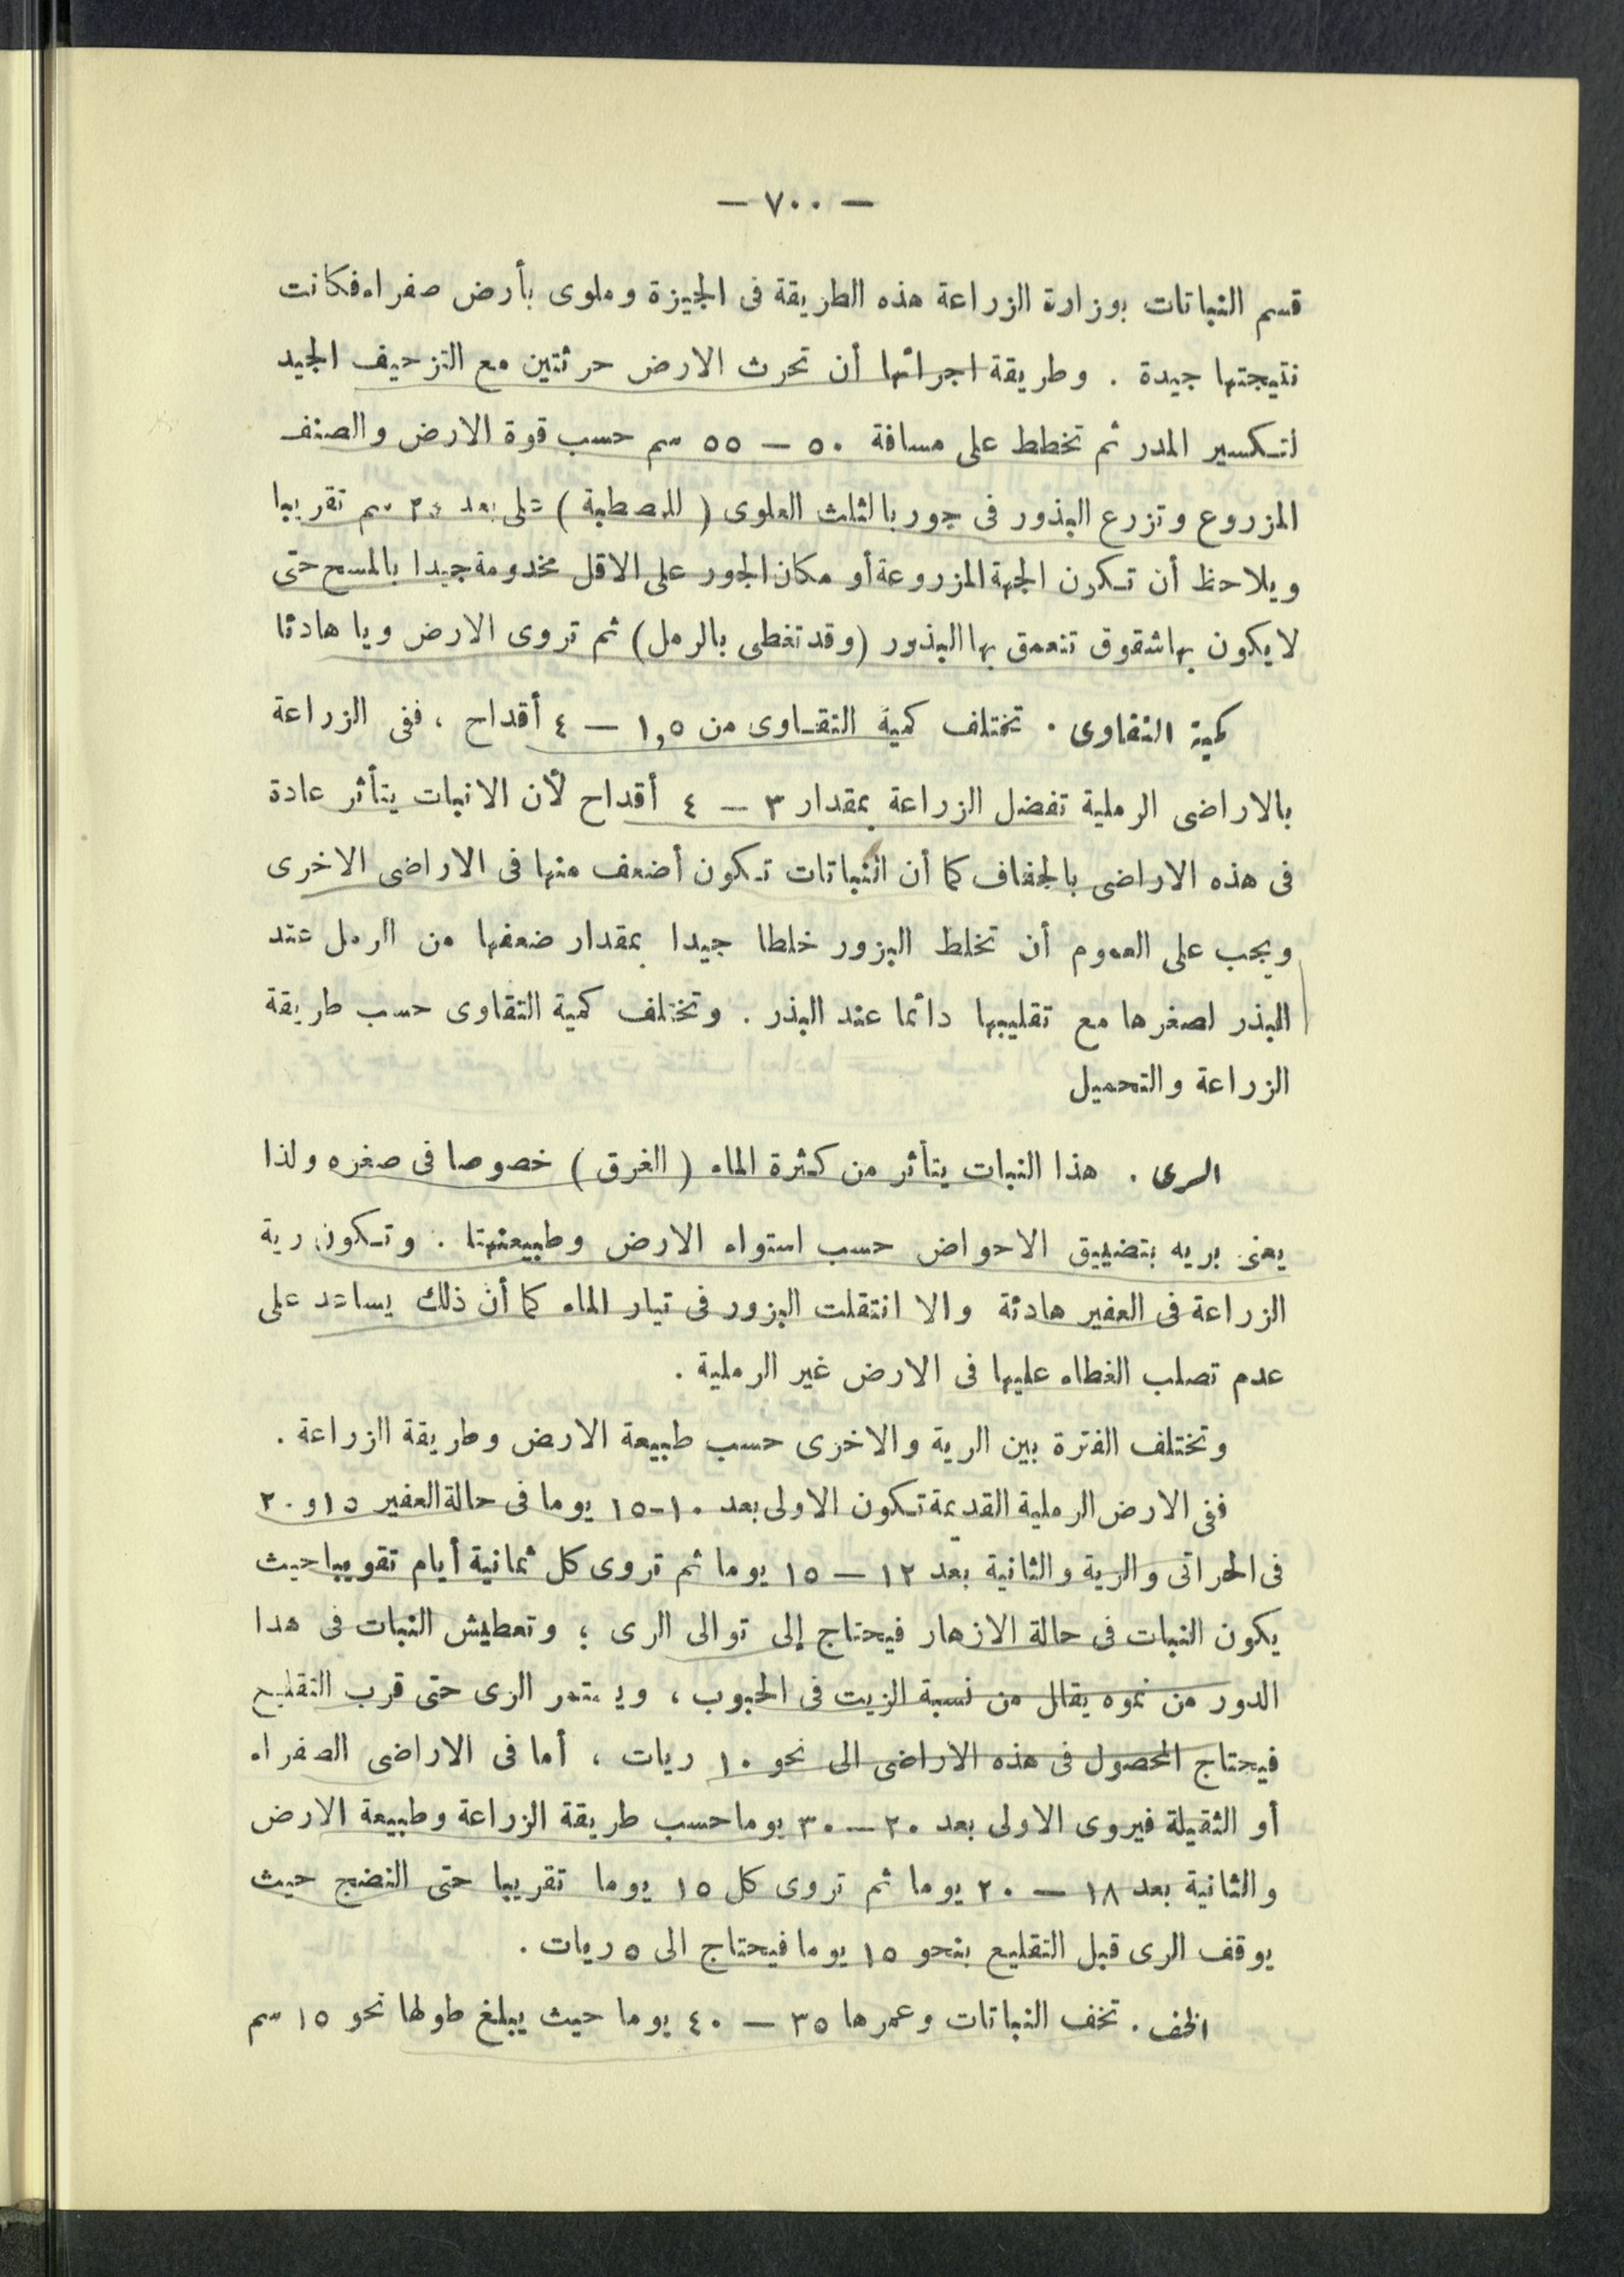 — ٧٠٠ —
قسم النباتات بوزارة الزراعة هذه الطريقة فى الجيزة وملوى بأرض صفراء فكانت
نتيجتها جيدة . وطريقة اجرائها أن تحرث الارض حرثتين مع التزحيف الجيد
لتكسير المدر ثم تخطط على مسافة ٥٠ — ٥٥ سم حسب قوة الارض والصنف
المزروع وتزرع البذور فى جور بالثلث العلوى ( للمصطبة ) على بعد ٢٥ سم تقريبا
ويلاحظ أن تكون الجهة المزروعة أو مكان الجور على الاقل مخدومة جيدا بالمسح حتى
لا يكون بها شقوق تتعمق بها البذور (وقد تغطى بالرمل) ثم تروى الارض ريا هادئا
كمية التقاوى . تختلف كمية التقاوى من ١,٥ — ٤ أقداح ، ففى الزراعة
بالاراضى الرملية تفضل الزراعة بمقدار ٣ — ٤ أقداح لأن الانبات يتأثر عادة
فى هذه الاراضى بالجفاف كما أن النباتات تكون أضعف منها فى الاراضى الاخرى
ويجب على العموم أن تخلط البزور خلطا جيدا بمقدار ضعفها من الرمل عند
البذر لصغرها مع تقليبها دائما عند البذر . وتختلف كمية التقاوى حسب طريقة
الزراعة والتحميل
الرى . هذا النبات يتأثر من كثرة الماء ( الغرق ) خصوصا فى صغره ولذا
يعنى بريه بتضييق الاحواض حسب استواء الارض وطبيعتها . وتكون رية
الزراعة فى العفير هادئة والا انتقلت البزور فى تيار الماء كما أن ذلك يساعد على
عدم تصلب الغطاء عليها فى الارض غير الرملية .
وتختلف الفترة بين الرية والاخرى حسب طبيعة الارض وطريقة الزراعة .
ففى الارض الرملية القديمة تكون الاولى بعد ١٠-١٥ يوما فى حالة العفير ١٥و ٢٠
فى الحراتى والرية والثانية بعد ١٢ — ١٥ يوما ثم تروى كل ثمانية أيام تقويبا حيث
يكون النبات فى حالة الازهار فيحتاج إلى توالى الرى ؛ وتعطيش النبات فى هدا
الدور من نموه يقلل من نسبة الزيت فى الحبوب ، ويستمر الرى حتى قرب التقليع
فيحتاج المحصول فى هذه الاراضى الى نحو ١٠ ريات ، أما فى الاراضى الصفراء
أو الثقيلة فيروى الاولى بعد ٢٠ — ٣٠ يوما حسب طريقة الزراعة وطبيعة الارض
والثانية بعد ١٨ — ٢٠ يوما ثم تروى كل ١٥ يوما تقريبا حتى النضج حيث
يوقف الرى قبل التقليع بنحو ١٥ يوما فيحتاج الى ٥ ريات .
الخف . تخف النباتات وعمرها ٣٥ — ٤٠ يوما حيث يبلغ طولها نحو ١٥ سم